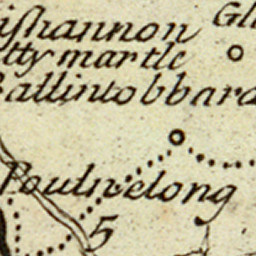 ishannon
Gl
tty martle
allintobbard
Poulnelong
5